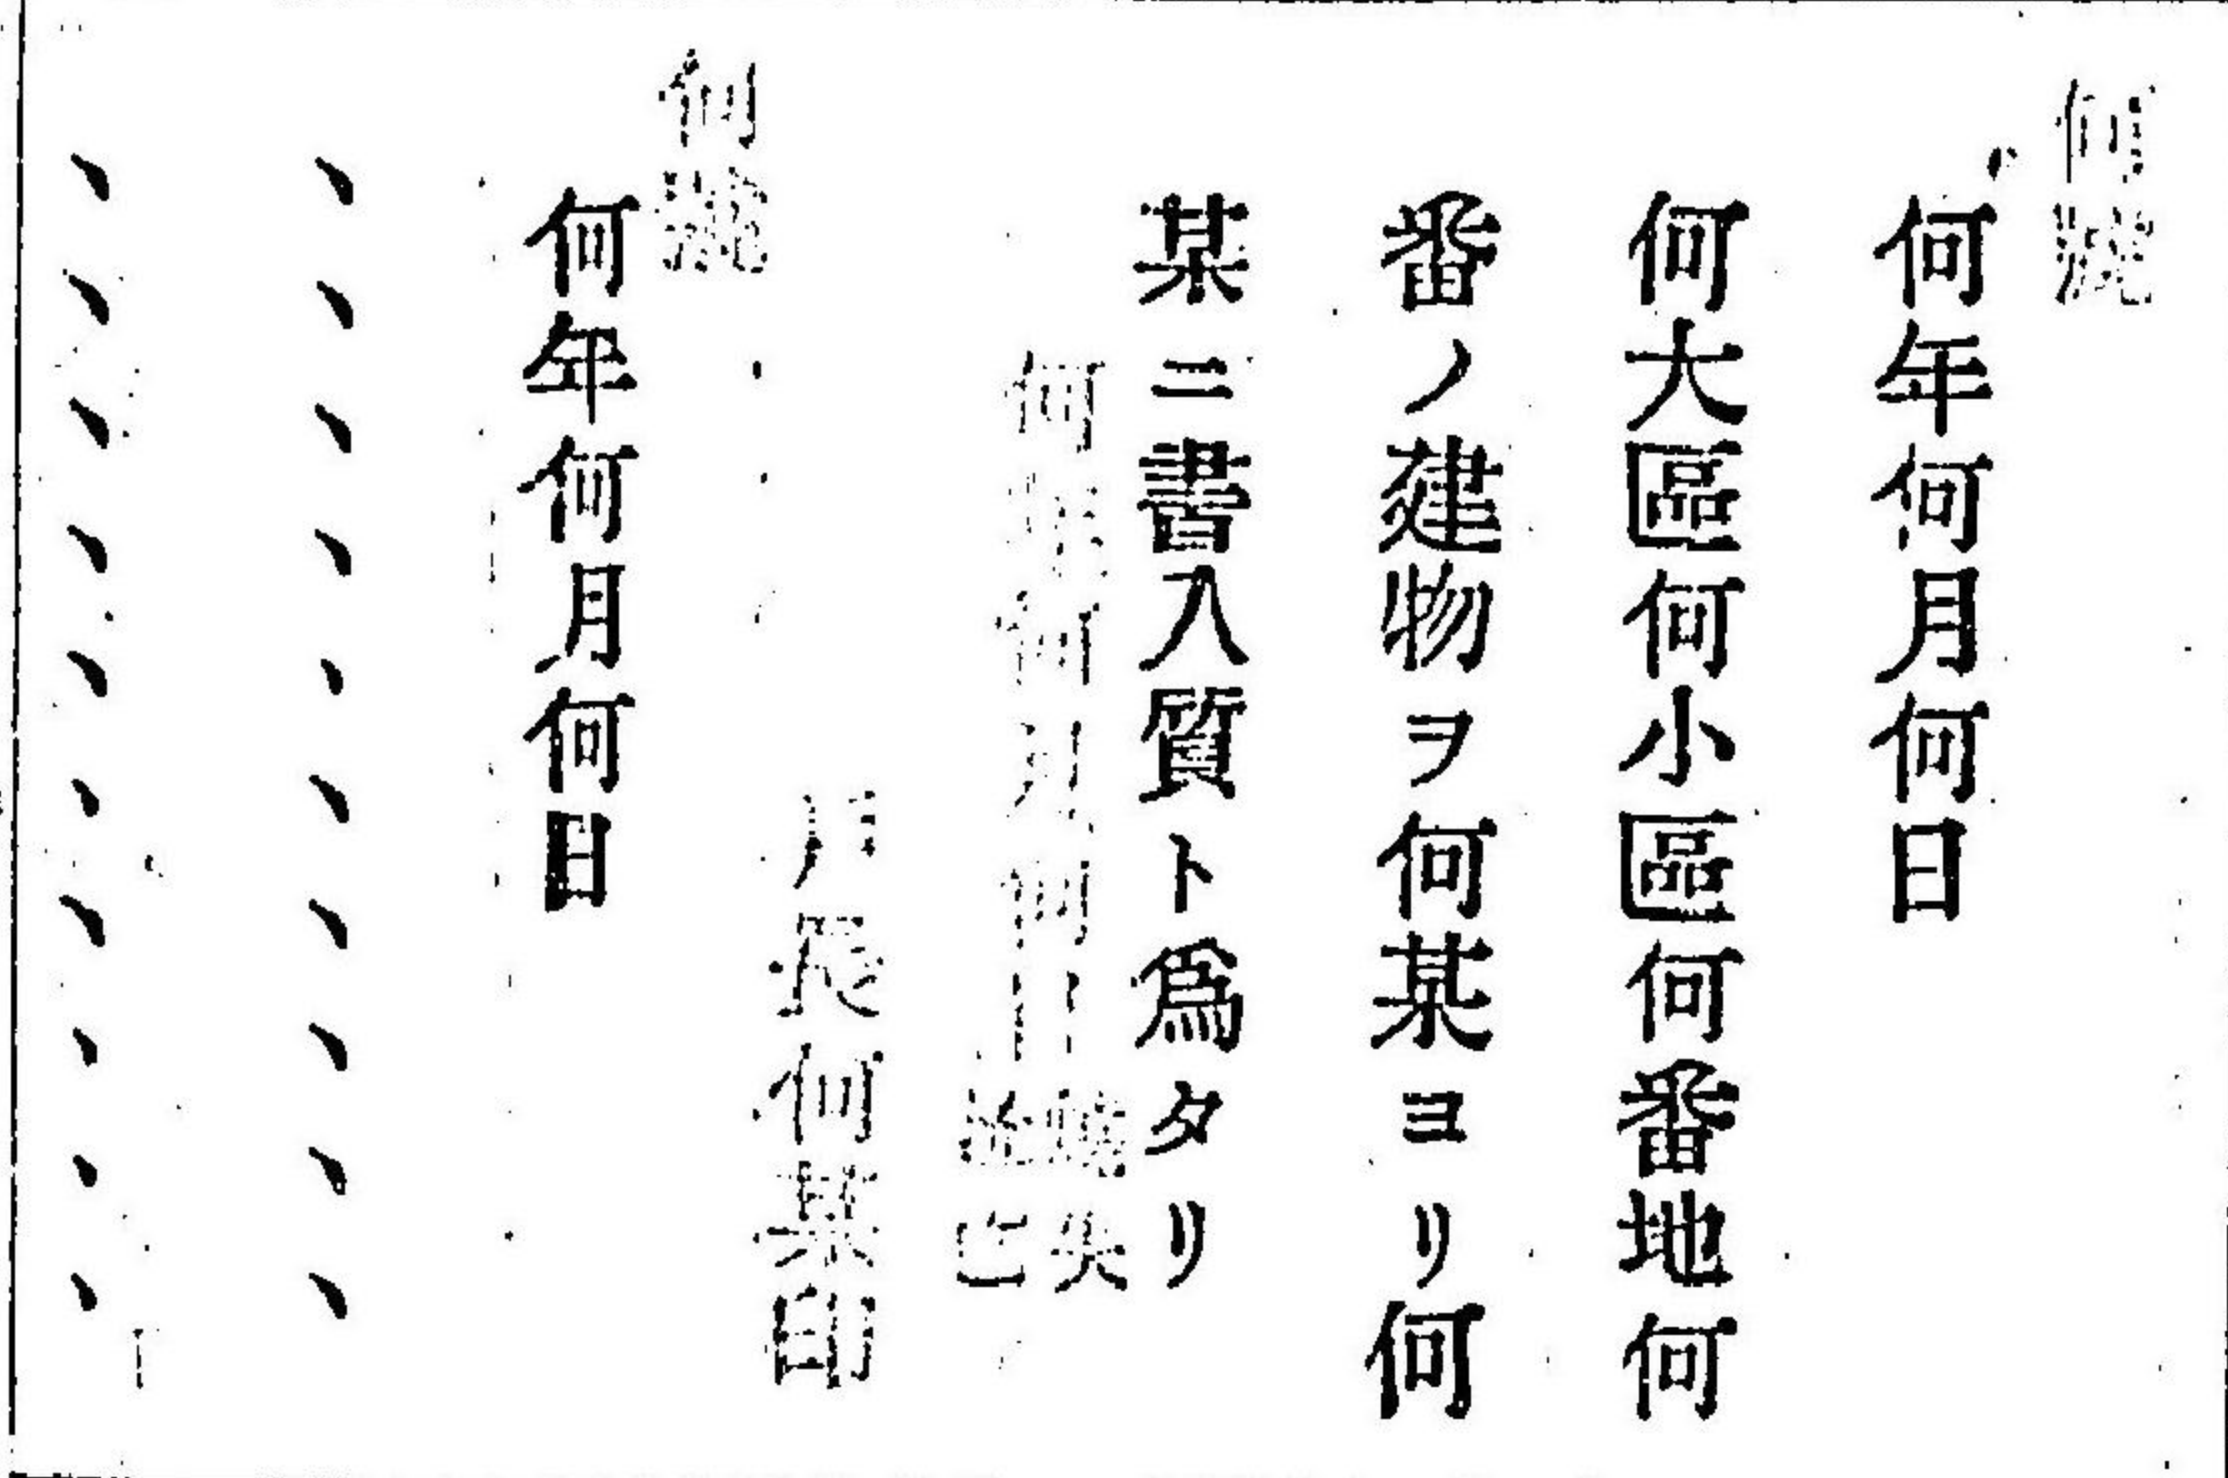 何號
何年何月何日
何大區何小區何番地何
番ノ建物ヲ何某ヨリ何
某ニ書入質ト爲タリ
何年何月何日燒失
亡
戸長何某印
何號
何年何月何日
、、、、、、、、、、
、、、、、、、、、、